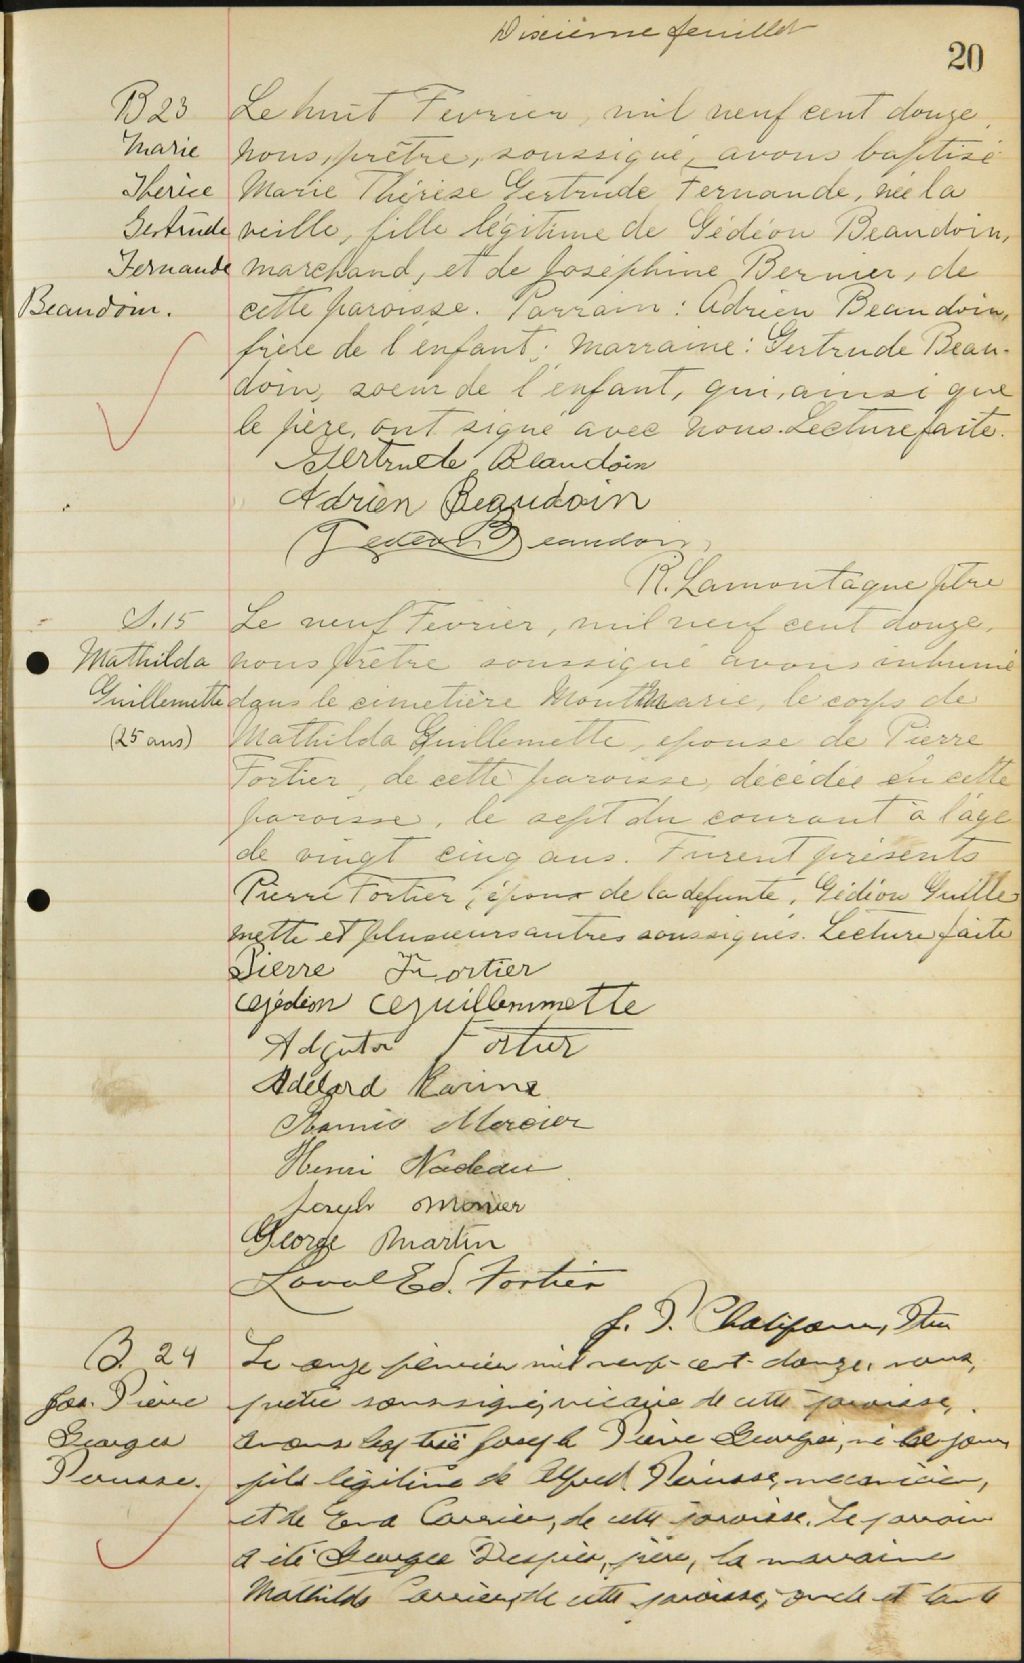 Dixième feuillet
20
B 23
Marie
Thérèse
Gertrude
Fernande
Beaudoin.
Le huit Fevrier, mil neuf cent douze,
nous, prêtre, soussigné, avons baptisé
Marie Thérèse Gertrude Fernande, née la
veille, fille légitime de Gédéon Beaudoin,
marchand, et de Joséphine Bernier, de
cette paroisse. Parrain: Adrien Beaudoin,
frère de l'enfant; Marraine: Gertrude Beau-
doin, soeur de l'enfant, qui, ainsi que
le père, ont signé avec nous. Lecture faite.
Gertrude Beaudoin
Adrien Beaudoin
Gedeon Beaudoin
R. Lamontagne ptre
S. 15
Mathilda
Guillemette
(25 ans)
Le neuf Fevrier, mil neuf cent douze,
nous prêtre soussigné avons inhumé
dans le cimetière Mont Marie, le corps de
Mathilda Guillemette, epouse de Pierre
Fortier, de cette paroisse, décédée en cette
paroisse, le sept du courant à l'âge
de vingt cinq ans. Furent présents
Pierre Fortier, époux de la defunte, Gédéon Guille
mette et plusieurs autres soussignés. Lecture faite
Pierre Fortier
Gédéon Guillemmette
Adjutor Fortier
Adélard
Mercier
Henri Nadeau
Joseph
George Martin
Laval Ed. Fortier
B. 24
Jos. Pierre
Georges
Perusse.
Le onze février mil neuf-cent-douze, nous,
prêtre soussigné, vicaire de cette paroisse,
avons baptisé Joseph Pierre Georges, né ce jour
fils légitime de Alfred Perusse, mécanicien,
et de Eva Carrier, de cette paroisse. Le parrain
a été Georges père, la marraine
Mathilda Carrier, de cette paroisse, oncle et tante